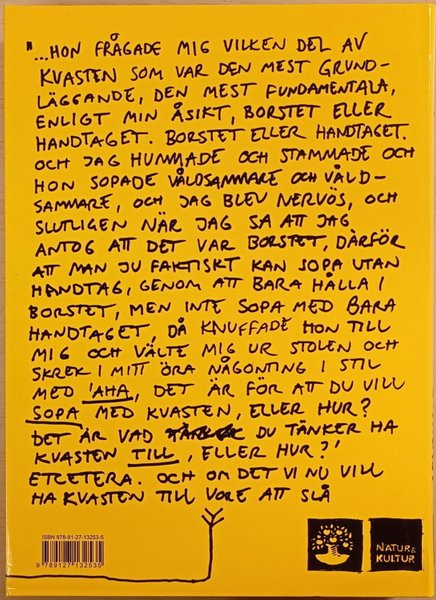 "...HON FRÅGADE MIG VILKEN DEL AV
KVASTEN SOM VAR DEN MEST GRUND-
LÄGGANDE, DEN MEST FUNDAMENTALA,
ENLIGT MIN ÅSIKT, BORSTET ELLER
HANDTAGET. BORSTET ELLER HANDTAGET.
OCH JAG HUMMADE OCH STAMMADE OCH
HON SOPADE VÅLDSAMMARE OCH VÅLD-
SAMMARE, OCH JAG BLEV NERVÖS, OCH
SLUTLIGEN NÄR JAG SA ATT JAG
ANTOG ATT DET VAR BORSTET, DÄRFÖR
ATT MAN JU FAKTISKT KAN SOPA UTAN
HANDTAG, GENOM ATT BARA HÅLLA I
BORSTET, MEN INTE SOPA MED BARA
HANDTAGET, DÅ KNUFFADE HON TILL
MIG OCH VÄLTE MIG UR STOLEN OCH
SKREK I MITT ÖRA NÅGONTING I STIL
MED 'AHA, DET ÄR FÖR ATT DU VILL
SOPA MED KVASTEN, ELLER HUR?
DET ÄR VAD DU TÄNKER HA
KVASTEN TILL, ELLER HUR?'
ETCETERA. OCH OM DET VI NU VILL
HA KVASTEN TILL VORE ATT SLÅ
ISBN 978-91-27-13253-5
9 789127 132535
NATUR &
KULTUR